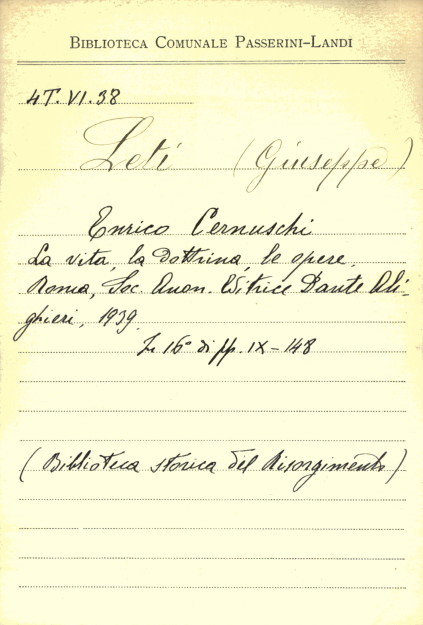 BIBLIOTECA COMUNALE PASSERINI-LANDI
4T.VI.38
Leti (Giuseppe)
Enrico Cernuschi
La vita, la dottrina, le opere.
Roma, Soc. Anon. Editrice Dante Ali-
ghieri, 1939.
In 16° di pp. IX-148
(Biblioteca storica del Risorgimento)